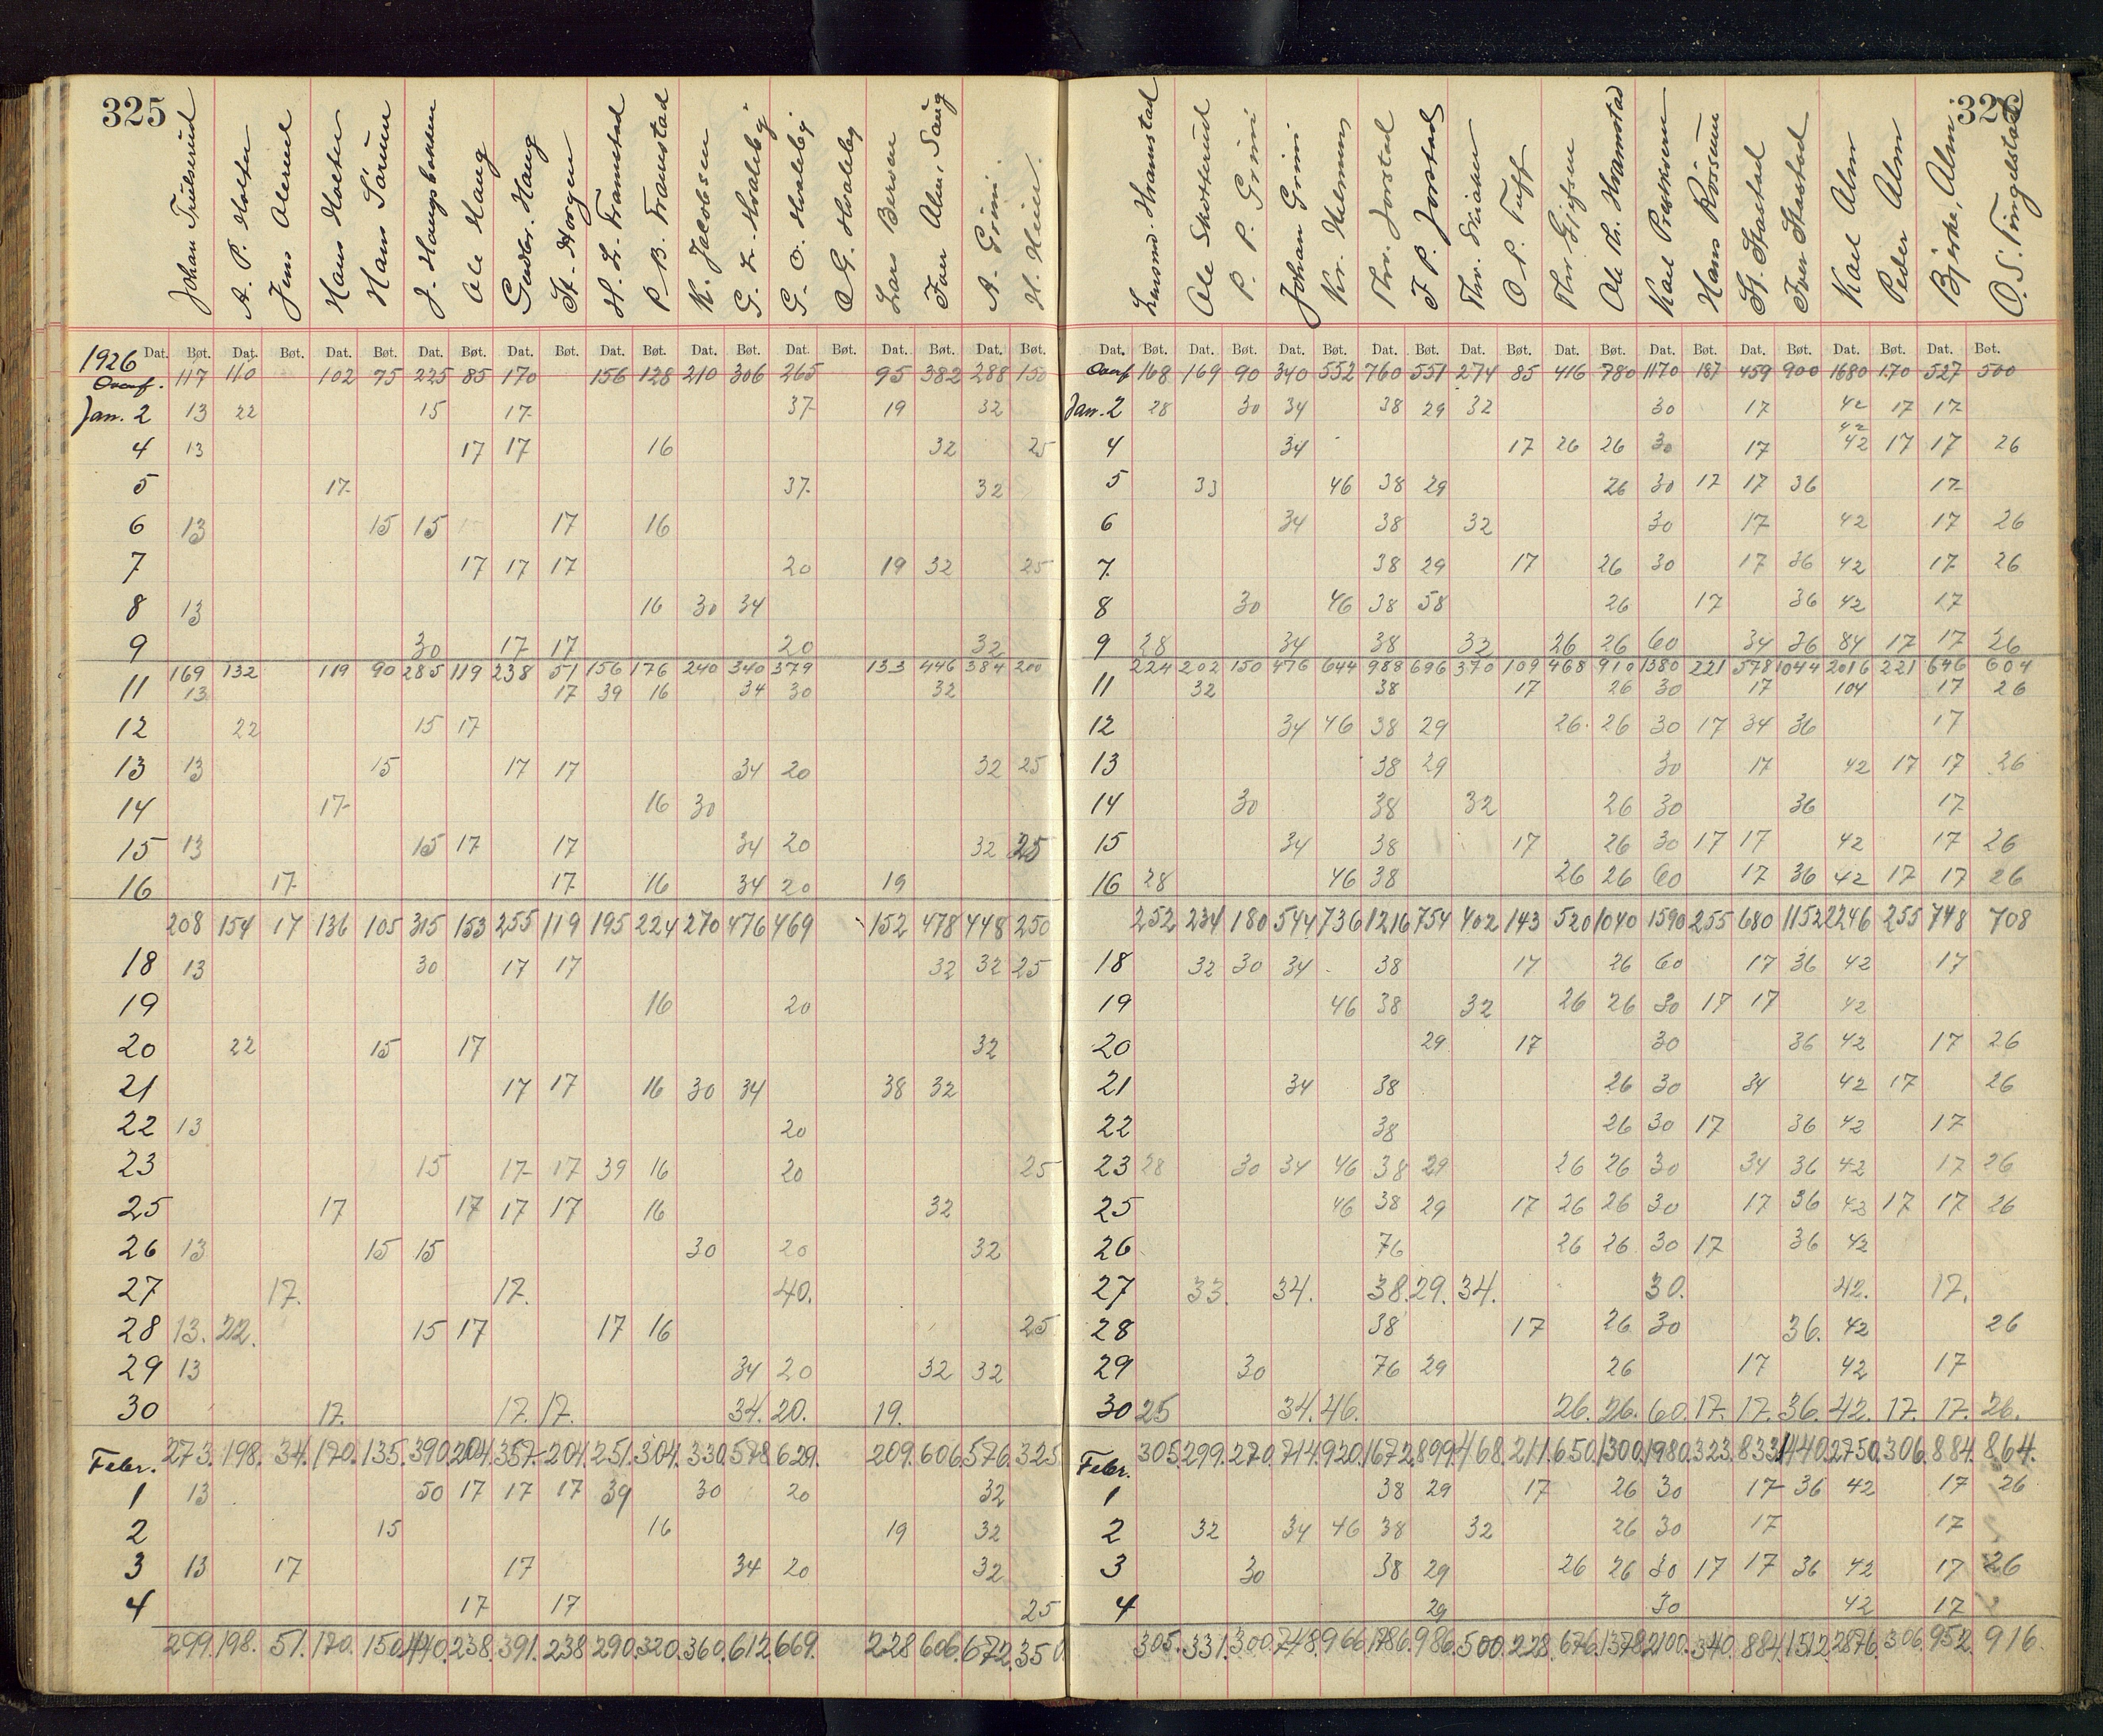 325
Johan Trulserud A. P. Holter Jens Alerud Hans Holter Hans Sørum J. Haugsbakken Ole Haug Gudbr. Haug St. Horgen H. L. Framstad P. B. Framstad K. Jacobsen G. L. Hvaleby G. O. Hvaleby O. G. Hvaleby Lars Berven Iver Alm, Saug A. Grini H. Heier.
1926 Dat. Bøt. Dat. Bøt. Dat. Bøt. Dat. Bøt. Dat. Bøt. Dat. Bøt. Dat. Bøt. Dat. Bøt. Dat. Bøt. Dat. Bøt.
Overf. 117 110 102 75 225 85 170 156 128 210 306 265 95 382 288 150
Jan. 2 13 22 15 17 37 19 32
4 13 17 17 16 32 25
5 17 37 32
6 13 15 15 17 16
7 17 17 17 20 19 32 25
8 13 16 30 34
9 30 17 17 20 32
169 132 119 90 285 119 238 51 156 176 240 340 379 133 446 384 200
11 13 17 39 16 34 30 32
12 22 15 17
13 13 15 17 17 34 20 32 25
14 17 16 30
15 13 15 17 17 34 20 32 25
16 17 17 16 34 20 19
208 154 17 136 105 315 153 255 119 195 224 270 476 469 152 478 448 250
18 13 30 17 17 32 32 25
19 16 20
20 22 15 17 32
21 17 17 16 30 34 38 32
22 13 20
23 15 17 17 39 16 20 25
25 17 17 17 17 16 32
26 13 15 15 30 20 32
27 17. 17. 40.
28 13. 22. 15 17 17 16 25
29 13 34 20 32 32
30 17. 17. 17. 34. 20. 19.
273. 198. 34. 170. 135. 390. 204. 357. 204. 251. 304. 330. 578. 629. 209. 606. 576. 325.
Febr.
1 13 50 17 17 17 39 30 20 32
2 15 16 19 32
3 13 17 17 34 20 32
4 17 17 25
299. 198. 51. 170. 150. 440. 238. 391. 238 290. 320. 360. 612. 669. 228 606. 672. 350.
326
Ole Skotterud P. P. Grini Johan Grini Kr. Helmen Thr. Jorstad F. P. Jorstad Thr. Skiaker O. P. Tuft Thr. Gjefsen Ole Th. Hramstad Karl Prestkvern Hans Røisum St. Stastad Iver Stastad Karl Alm Peder Alm Bjerke, Alm O. S. Tingelstad
Dat. Bøt. Dat. Bøt. Dat. Bøt. Dat. Bøt. Dat. Bøt. Dat. Bøt. Dat. Bøt. Dat. Bøt. Dat. Bøt. Dat. Bøt.
Overf 168 169 90 340 552 760 551 274 85 416 780 1170 187 459 900 1680 170 527 500
Jan. 2 28 30 34 38 29 32 30 17 42 17 17
42
4 34 17 26 26 30 17 42 17 17 26
5 33 46 38 29 26 30 17 17 36 17
6 34 38 32 30 17 42 17 26
7. 38 29 17 26 30 17 36 42 17 26
8 30 46 38 58 26 17 36 42 17
9 28 34 38 32 26 26 60 34 36 84 17 17 26
224 202 150 476 644 988 696 370 109 468 910 1380 221 578 1044 2016 221 646 604
11 32 38 17 26 30 17 104 17 26
12 34 46 38 29 26. 26 30 17 34 36 17
13 38 29 30 17 42 17 17 26
14 30 38 32 26 30 36 17
15 34 38 17 26 30 17 17 42 17 26
16 28 46 38 26 26 60 17 36 42 17 17 26
252 234 180 544 736 1216 754 402 143 520 1040 1590 255 680 1152 2246 255 748 708
18 32 30 34 38 17 26 60 17 36 42 17
19 46 38 32 26 26 30 17 17 42
20 29 17 30 36 42 17 26
21 34 38 26 30 34 42 17 26
22 38 26 30 17 36 42 17
23 28 30 34 46 38 29 26 26 30 34 36 42 17 26
25 46 38 29 17 26 26 30 17 36 42 17 17 26
26 76 26 26 30 17 36 42
27 33. 34. 38. 29. 34. 30. 42. 17.
28 38 17 26 30 36. 42 26
29 30 76 29 26 17 42 17
30 25 34. 46. 26. 26. 60. 17. 17. 36. 42. 17. 17. 26.
305. 299. 270. 714. 920. 1672. 899. 468. 211. 650. 1300. 1980. 323. 833. 1440. 2750. 306. 884. 864.
Febr.
1 38 29 17 26 30 17 36 42 17 26
2 32 34 46 38 32 26 30 17 17
3 30 38 29 26 26 30 17 17 36 42 17 26
4 29 30 42 17
305. 331. 300. 748. 966. 1786. 986. 500. 228. 676. 1378. 2100. 340. 884. 1512. 2876. 306. 952. 916.